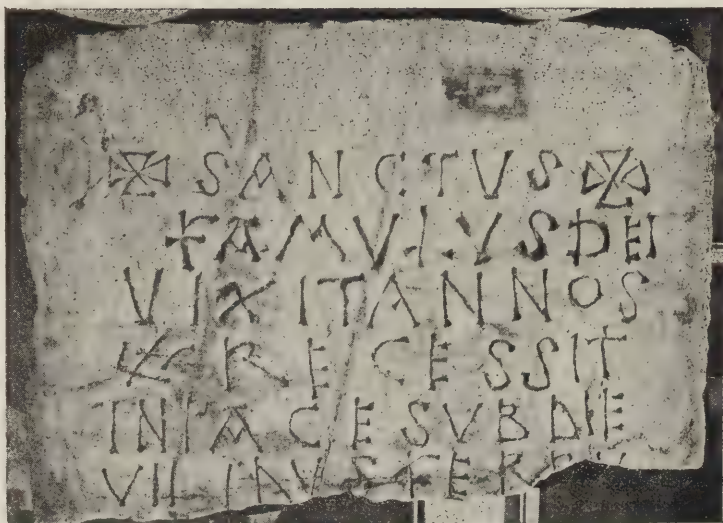 SANCTVS
FAMVLVS DEI
VIXIT ANNOS
RECESSIT
IN PACE SVB DIE
VII IDVS FEBRV